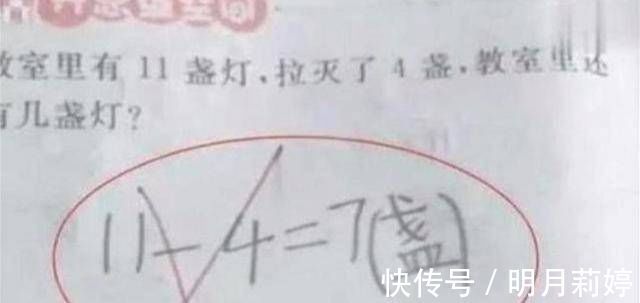 教室里有 11 盏灯,拉灭了 4 盏,教室里还
有几盏灯?
11-4=7(盏)
快传号 / 明月莉婷